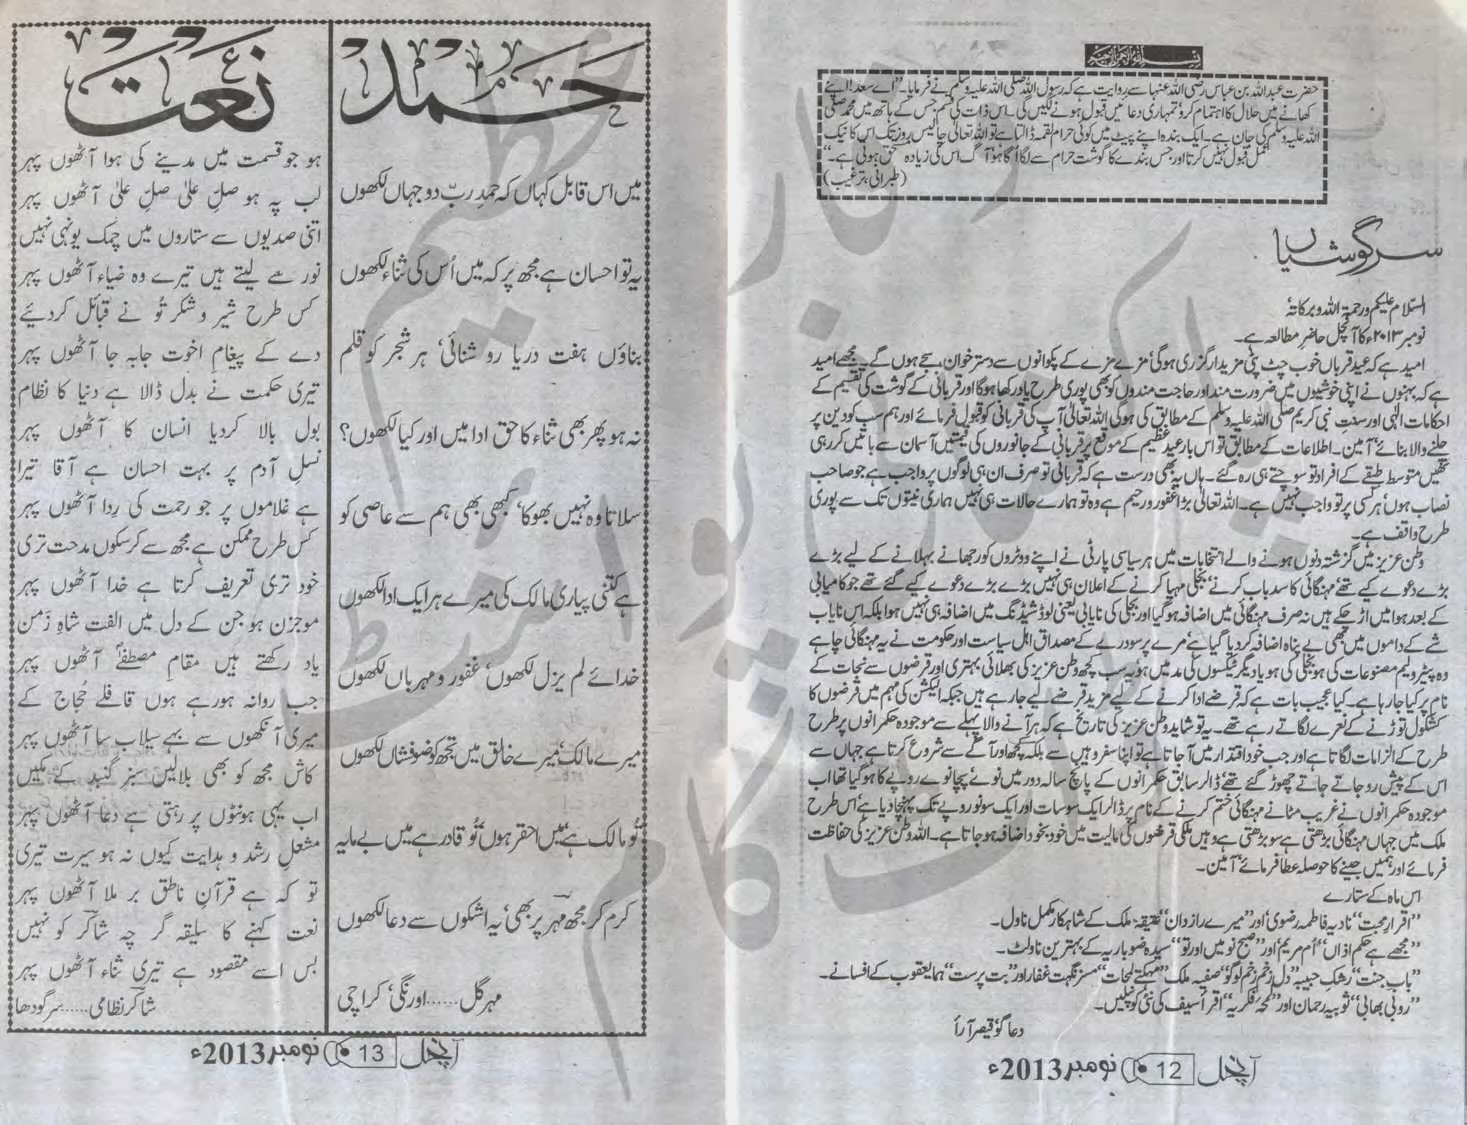 بسم اللہ الرحمن الرحیم
حضرت عبداللہ بن عباس رضی اللہ عنہما سے روایت ہے کہ رسول اللہ صلی اللہ علیہ وسلم نے فرمایا۔ ”اے سعد! اپنے
کھانے میں حلال کا اہتمام کرو، تمہاری دعائیں قبول ہونے لگیں گی۔ اس ذات کی قسم جس کے ہاتھ میں محمد صلی
اللہ علیہ وسلم کی جان ہے۔ ایک بندہ اپنے پیٹ میں کوئی حرام لقمہ ڈالتا ہے تو اللہ تعالیٰ چالیس روز تک اس کا نیک
عمل قبول نہیں کرتا اور جس بندے کا گوشت حرام سے لگا اُگا ہو آگ اس کی زیادہ مستحق ہوتی ہے۔“
(طبرانی، ترغیب)
سرگوشیاں
السلام علیکم ورحمۃ اللہ وبرکاتہ
نومبر ۲۰۱۳ء کا آنچل حاضر مطالعہ ہے۔
امید ہے کہ عید قرباں خوب چٹ پٹی مزیدار گزری ہوگی‘ مزے مزے کے پکوانوں سے دسترخوان سجے ہوں گے۔ مجھے امید
ہے کہ بہنوں نے اپنی خوشیوں میں ضرورت مند اور حاجت مندوں کو بھی پوری طرح یاد رکھا ہوگا اور قربانی کے گوشت کی تقسیم کے
احکامات الٰہی اور سنت نبی کریم صلی اللہ علیہ وسلم کے مطابق کی ہوگی اللہ تعالیٰ آپ کی قربانی کو قبول فرمائے اور ہم سب کو دین پر
چلنے والا بنائے آمین۔ اطلاعات کے مطابق تو اس بار عید عظیم کے موقع پر قربانی کے جانوروں کی قیمتیں آسمان سے باتیں کررہی
تھیں متوسط طبقے کے افراد تو سوچتے ہی رہ گئے۔ ہاں یہ بھی درست ہے کہ قربانی تو صرف ان ہی لوگوں پر واجب ہے جو صاحب
نصاب ہوں‘ ہر کسی پر تو واجب نہیں ہے۔ اللہ تعالیٰ بڑا غفور و رحیم ہے وہ تو ہمارے حالات ہی نہیں ہماری نیتوں تک سے پوری
طرح واقف ہے۔
وطن عزیز میں گزشتہ دنوں ہونے والے انتخابات میں ہر سیاسی پارٹی نے اپنے ووٹروں کو رجھانے بہلانے کے لیے بڑے
بڑے دعوے کیے تھے‘ مہنگائی کا سدباب کرنے‘ بجلی مہیا کرنے کے اعلان ہی نہیں بڑے بڑے دعوے کیے گئے تھے جو کامیابی
کے بعد ہوا میں اڑ چکے ہیں نہ صرف مہنگائی میں اضافہ ہوگیا اور بجلی کی نایابی یعنی لوڈشیڈنگ میں اضافہ ہی نہیں ہوا بلکہ اس نایاب
شے کے داموں میں بھی بے پناہ اضافہ کردیا گیا ہے‘ مرے پر سو درے کے مصداق اہل سیاست اور حکومت نے یہ مہنگائی چاہے
وہ پیٹرولیم مصنوعات کی ہو بجلی کی ہو یا دیگر ٹیکسوں کی مد میں ہو یہ سب کچھ وطن عزیز کی بھلائی بہتری اور قرضوں سے نجات کے
نام پر کیا جارہا ہے۔ کیا عجیب بات ہے کہ قرضے ادا کرنے کے لیے مزید قرضے لیے جارہے ہیں جبکہ الیکشن کی مہم میں قرضوں کا
کشکول توڑنے کے نعرے لگاتے رہے تھے۔ یہ تو شاید وطن عزیز کی تاریخ ہے کہ ہر آنے والا پہلے سے موجودہ حکمرانوں پر طرح
طرح کے الزامات لگاتا ہے اور جب خود اقتدار میں آجاتا ہے تو اپنا سفر وہیں سے بلکہ کچھ اور آگے سے شروع کرتا ہے جہاں سے
اس کے پیش رو جاتے جاتے چھوڑ گئے تھے‘ ڈالر سابق حکمرانوں کے پانچ سالہ دور میں نوے پچانوے روپے کا ہوگیا تھا اب
موجودہ حکمرانوں نے غریب مٹانے مہنگائی ختم کرنے کے نام پر ڈالر ایک سو سات اور ایک سو نو روپے تک پہنچا دیا ہے‘ اس طرح
ملک میں جہاں مہنگائی بڑھتی ہے سو بڑھتی ہے وہیں ملکی قرضوں کی مالیت میں خود بخود اضافہ ہو جاتا ہے۔ اللہ وطن عزیز کی حفاظت
فرمائے اور ہمیں جینے کا حوصلہ عطا فرمائے‘ آمین۔
اس ماہ کے ستارے
”اقرارِ محبت“ نادیہ فاطمہ رضوی‘ اور ”میرے رازداں“ عتیقہ ملک کے شاہکار مکمل ناول۔
”مجھے ہے حکم اذاں“ اُم مریم‘ اور ”صبح نو میں اور تو“ سیدہ ضوباریہ کے بہترین ناولٹ۔
”باب جنت“ رشک حبیبہ‘ ”دل زخم زخم لوگو“ صفیہ ملک‘ ”مہکتے لمحات“ مسز نگہت غفار اور ”بت پرست“ ہما یعقوب کے افسانے۔
”روبی بھابی“ ثوبیہ رحمان اور ”لمحہ فکریہ“ اقرأ سیف کی نئی کونپلیں۔
دعاگو قیصر آرأ
آنچل 12 نومبر 2013ء
حمد
میں اس قابل کہاں کہ حمدِ ربّ دو جہاں لکھوں
یہ تو احسان ہے مجھ پر کہ میں اُس کی ثناء لکھوں
بناؤں ہفت دریا روشنائی‘ ہر شجر کو قلم
نہ ہو پھر بھی ثناء کا حق ادا میں اور کیا لکھوں؟
سلاتا وہ نہیں بھوکا‘ کبھی بھی ہم سے عاصی کو
ہے کتنی پیاری مالک کی میرے ہر ایک ادا لکھوں
خدائے لم یزل لکھوں‘ غفور و مہرباں لکھوں
میرے مالک‘ میرے خالق میں تجھ کو ضوفشاں لکھوں
تُو مالک ہے‘ میں احقر ہوں‘ تُو قادر ہے میں بے مایہ
کرم کر مجھ مہر پر بھی‘ یہ اشکوں سے دعا لکھوں
مہر گل......اورنگی‘ کراچی
نعت
ہو جو قسمت میں مدینے کی ہوا آٹھوں پہر
لب پہ ہو صلِ علیٰ صلِ علیٰ آٹھوں پہر
اتنی صدیوں سے ستاروں میں چمک یونہی نہیں
نور سے لیتے ہیں تیرے وہ ضیاء آٹھوں پہر
کس طرح شیر و شکر تُو نے قبائل کردیئے
دے کے پیغامِ اخوت جابہ جا آٹھوں پہر
تیری حکمت نے بدل ڈالا ہے دنیا کا نظام
بول بالا کردیا انسان کا آٹھوں پہر
نسلِ آدم پر بہت احسان ہے آقا تیرا
ہے غلاموں پر جو رحمت کی رِدا آٹھوں پہر
کس طرح ممکن ہے مجھ سے کرسکوں مدحت تری
خود تری تعریف کرتا ہے خدا آٹھوں پہر
موجزن ہو جن کے دل میں الفت شاہِ زَمن
یاد رکھتے ہیں مقامِ مصطفےٰ آٹھوں پہر
جب روانہ ہورہے ہوں قافلے حُجاج کے
میری آنکھوں سے بہے سیلاب سا آٹھوں پہر
کاش مجھ کو بھی بلالیں سبز گنبد کے مکیں
اب یہی ہونٹوں پر رہتی ہے دعا آٹھوں پہر
مشعلِ رشد و ہدایت کیوں نہ ہو سیرت تیری
تو کہ ہے قرآنِ ناطق بر ملا آٹھوں پہر
نعت کہنے کا سلیقہ گر چہ شاکر کو نہیں
بس اسے مقصود ہے تیری ثناء آٹھوں پہر
شاکر نظامی......سرگودھا
آنچل 13 نومبر 2013ء